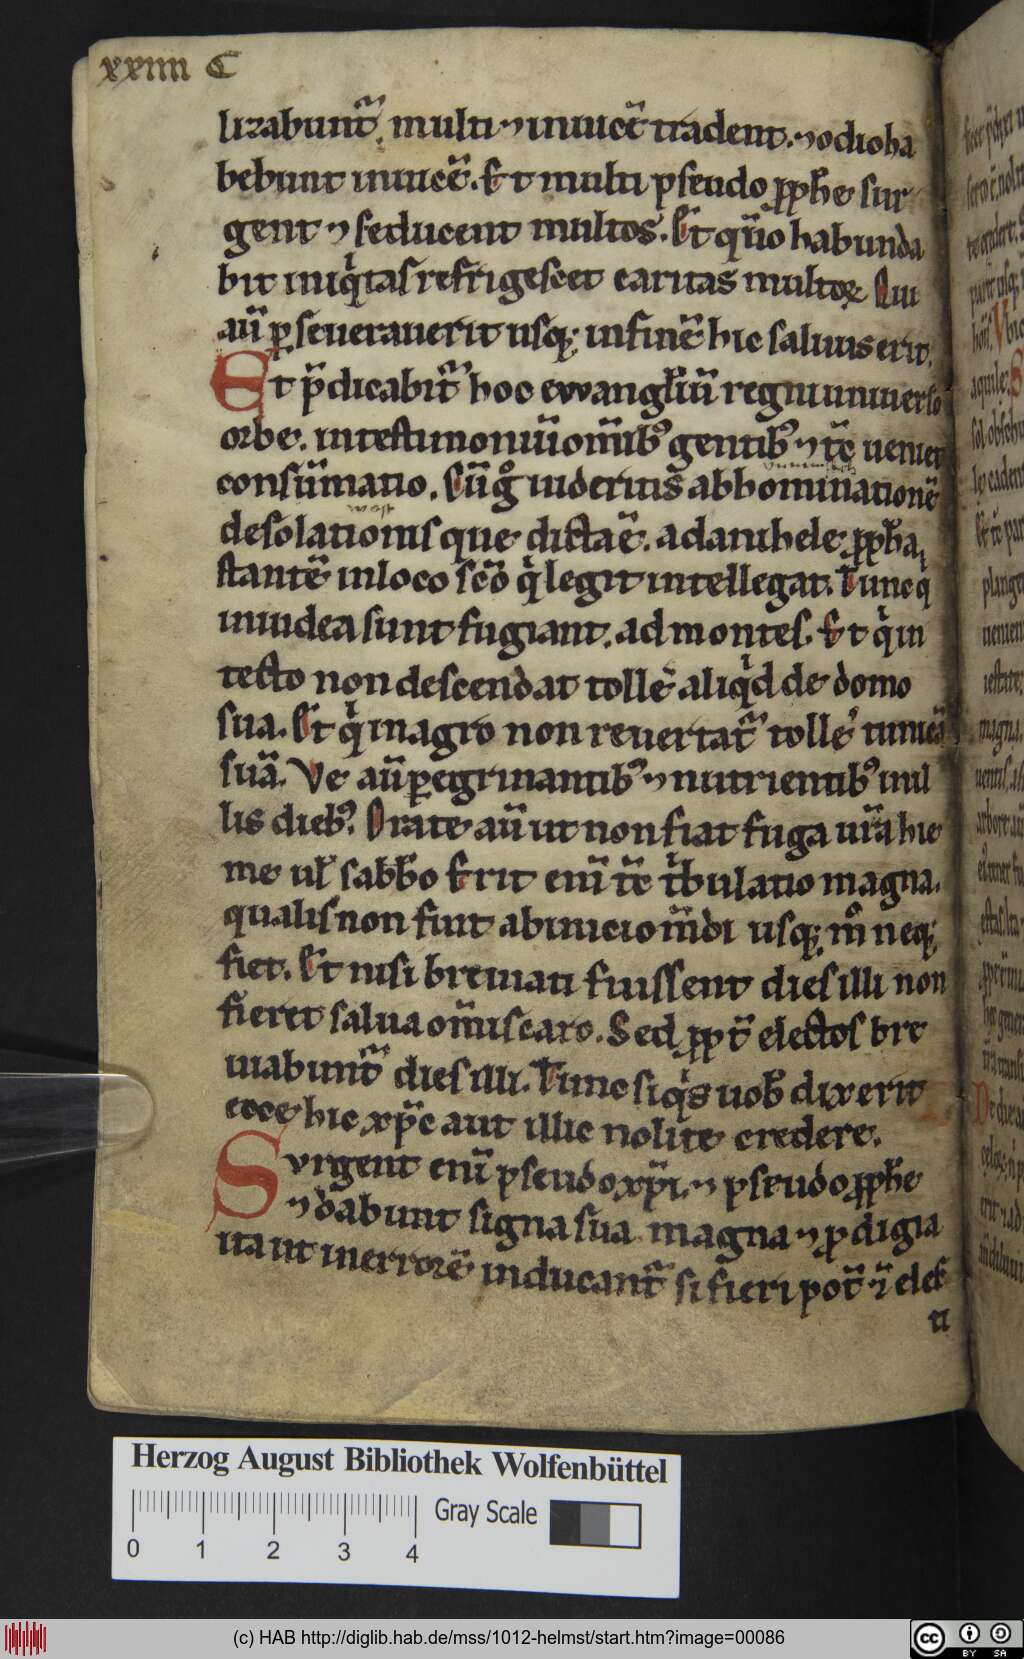 xxiiii C
lizabunt᷑. multi ⁊ inuicē tradent. ⁊ odio ha
bebunt inuicē. Et multi pseudo ꝓph̄e sur
gent ⁊ seducent multos. Et qm̄o habunda
bit iniqͥtas refrigescet caritas multoꝝ Qui
aū ꝑseuerauerit usqꝫ in finē hic saluus erit.
Et p̄dicabit᷑ hoc ewangl̄iū regni uniuerso
orbe. in testimoniū om̄ibꝰ gentibꝰ ⁊ tc̄ ueniet
consūmatio. Cū gͦ uideritis abhominationē
desolationis que dicta ē. a danihele ꝓph̄a
stantē in loco sc̄o qͥ legit intellegat. Tunc q
in iudea sunt fugiant. ad montes. Et qͥ in
tecto non descendat tolle᷑ aliqͥd de domo
sua. Et qͥ in agro non reuertat᷑ tolle᷑ tunicā
suā. Ve aū p̄egrinantibꝰ ⁊ nutrientibꝰ in il
lis diebꝰ. Orate aū ut non fiat fuga ur̄a hie
me ul̄ sabb̄o Erit enī tc̄ tͥbulatio magna.
qualis non fuit ab inicio m̄di usqꝫ mͦ neqꝫ
fiet. Et nisi breuiati fuissent dies illi non
fieret salua om̄is caro. Sed ꝓpt̄ electos bre
uiabunt᷑ dies illi. Tunc siqͥs uob̄ dixerit
ecce hic xp̄c aut illic nolite credere.
Surgent enī pseudo xp̄i. ⁊ pseudo ꝓph̄e
⁊ dabunt signa sua magna ⁊ ꝓdigia
ita ut in errorē inducant᷑ si fieri pot̄ ⁊ elec
ti
Herzog August Bibliothek Wolfenbüttel
Gray Scale
0 1 2 3 4
(c) HAB http://diglib.hab.de/mss/1012-helmst/start.htm?image=00086
cc BY SA